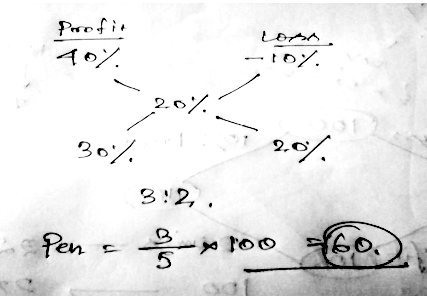 Profit Loss
40% -10%
20%
30% 20%
3:2.
Pen = 3/5 × 100 = 60.